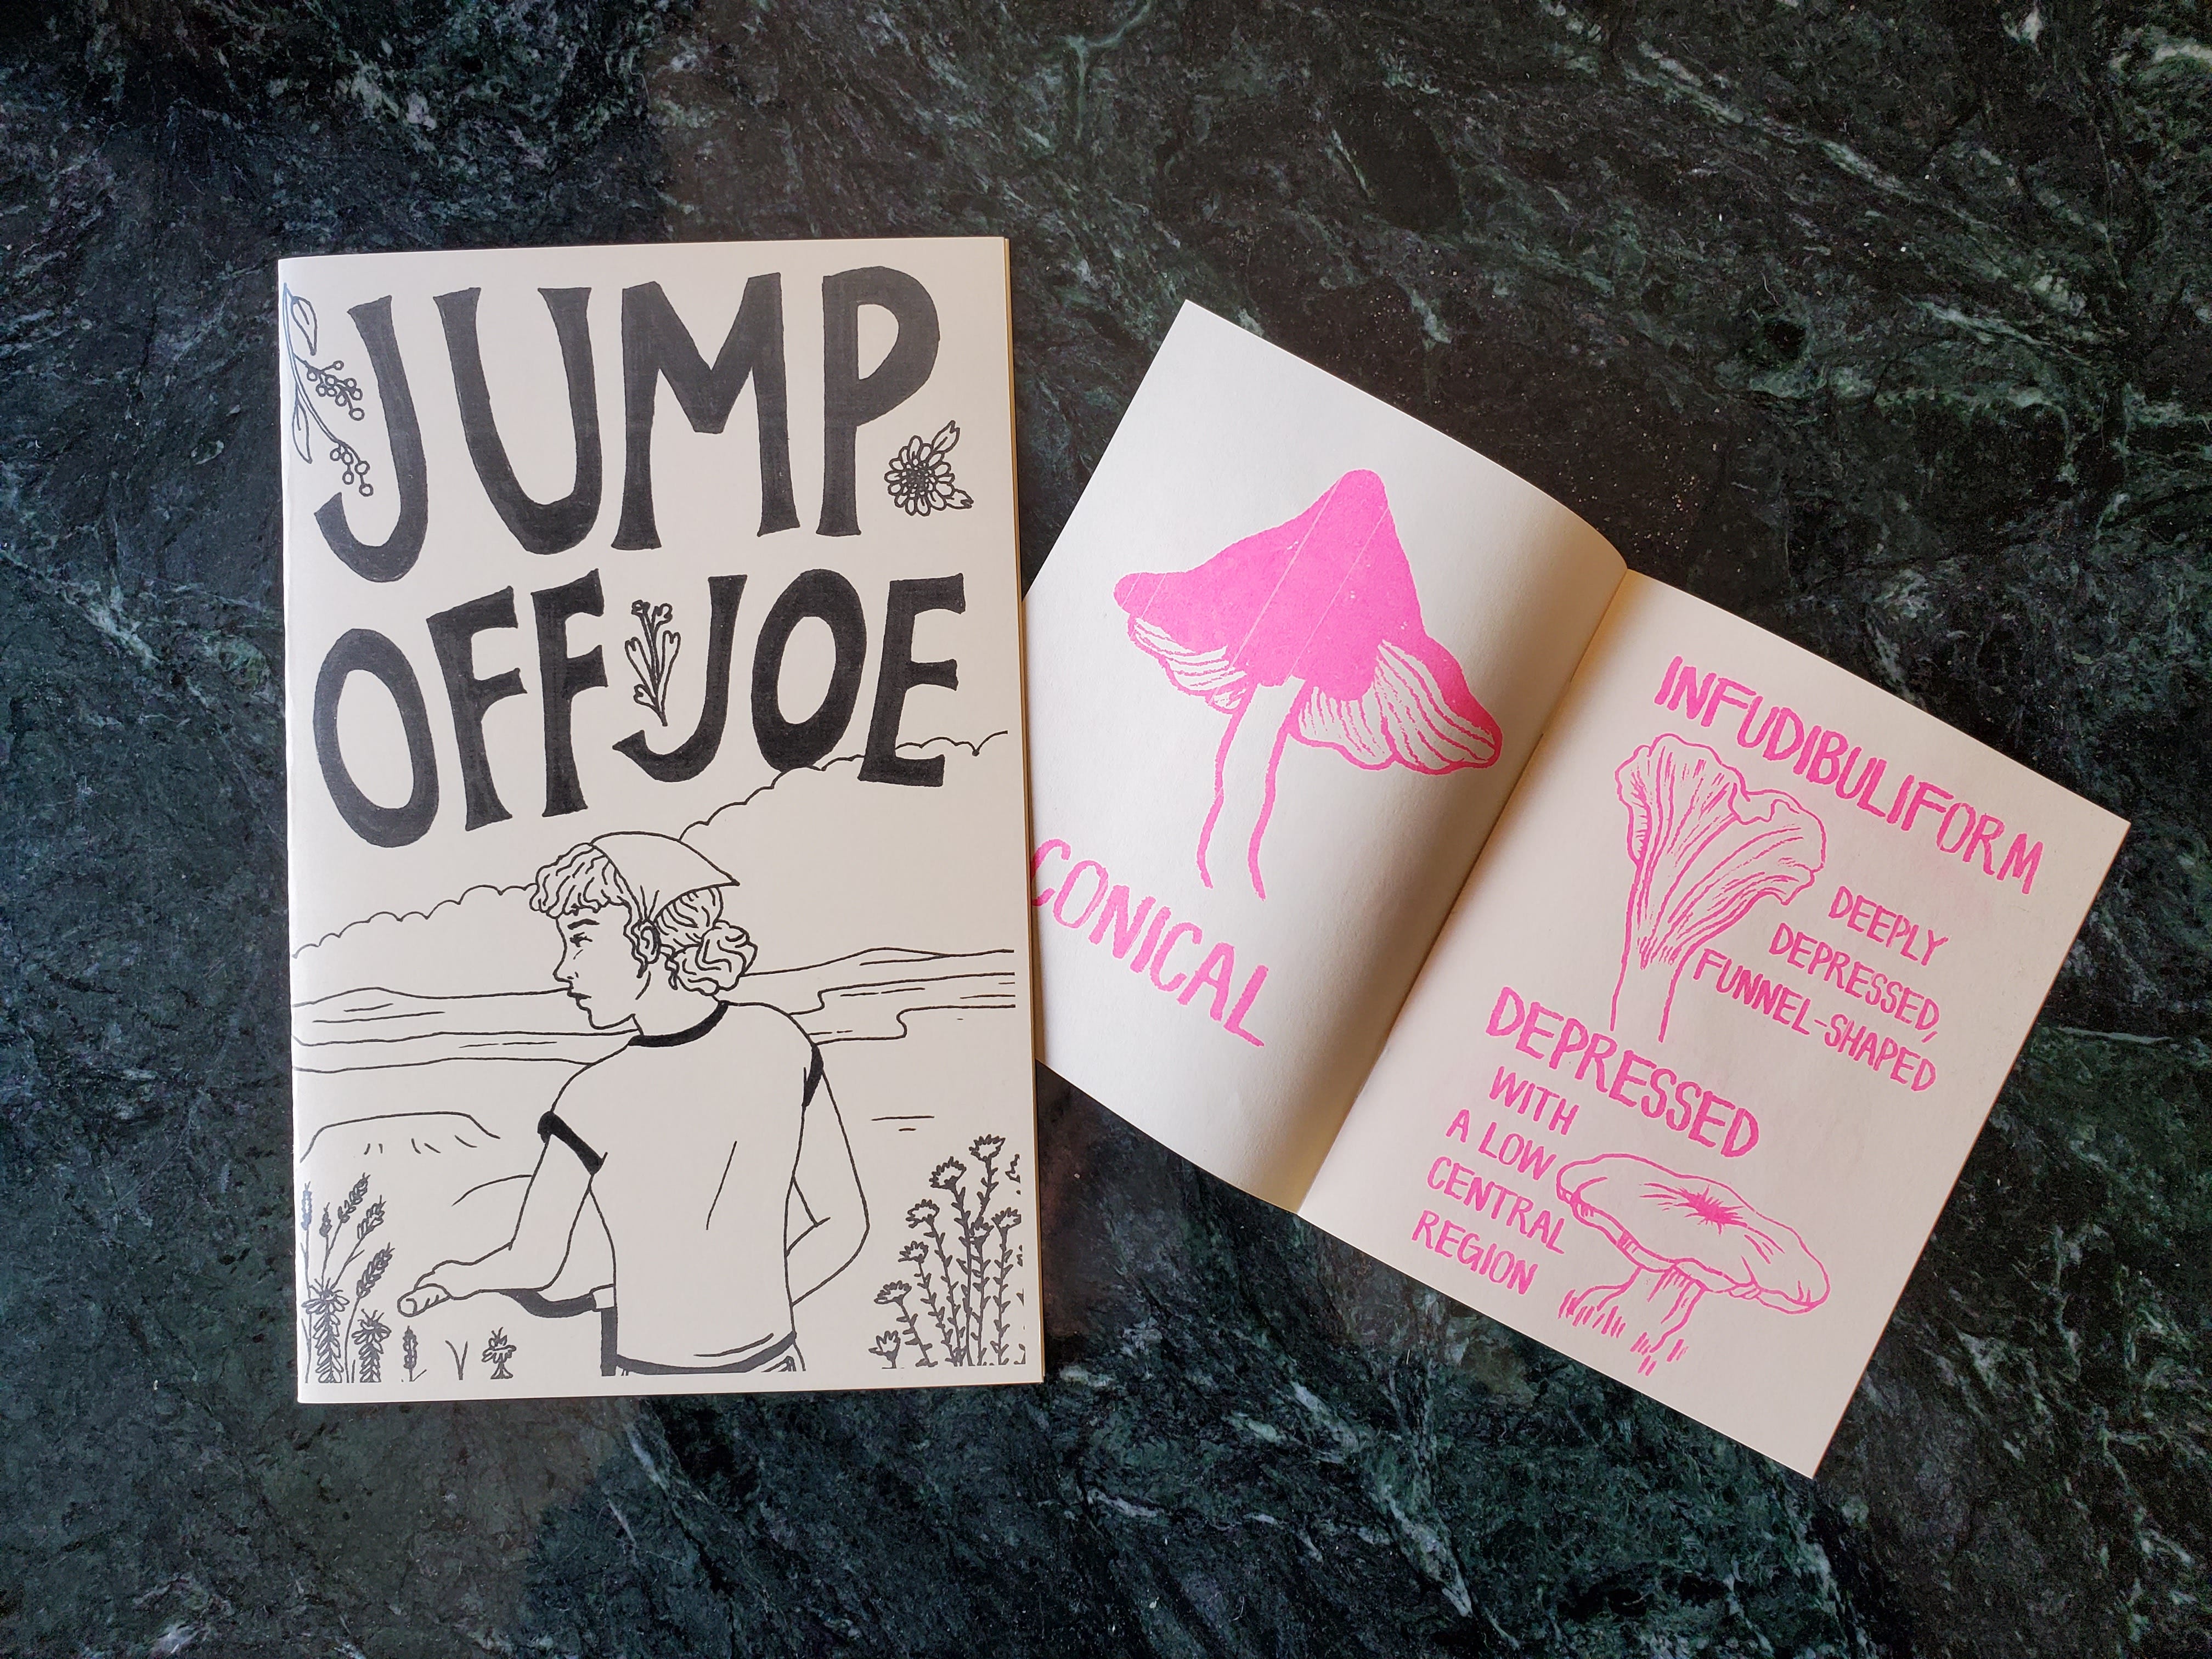 JUMP
OFF JOE
CONICAL
INFUDIBULIFORM
DEEPLY
DEPRESSED,
FUNNEL-SHAPED
DEPRESSED
WITH
A LOW
CENTRAL
REGION